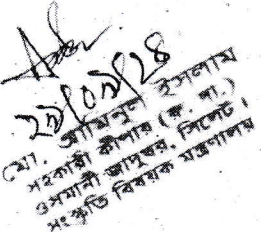 ২৮/০৮/২৪
মো. আমিনুল ইসলাম
সহকারী কীপার (রু. দা.)
ওসমানী জাদুঘর, সিলেট।
সংস্কৃতি বিষয়ক মন্ত্রণালয়